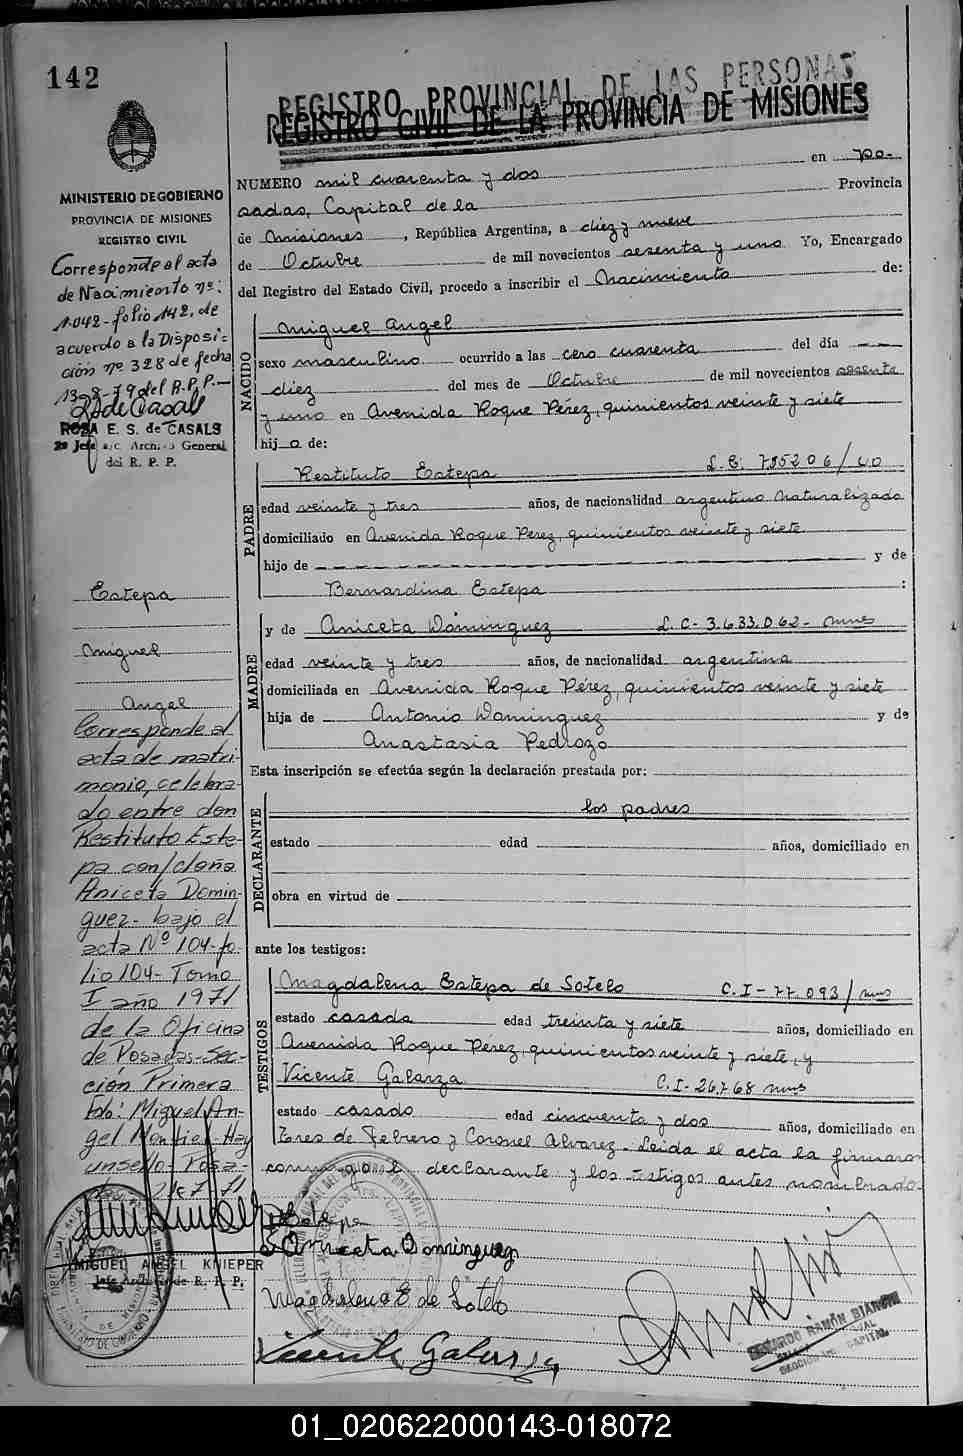 142
REGISTRO PROVINCIAL DE LAS PERSONAS
REGISTRO CIVIL DE LA PROVINCIA DE MISIONES
MINISTERIO DE GOBIERNO
PROVINCIA DE MISIONES
REGISTRO CIVIL
Corresponde al acta
de Nacimiento nº:
1.042-folio 142, de
acuerdo a la Disposi-
ción nº 328 de fecha
13-8-79 del R.P.P.-
R S de Casals
ROSA E. S. de CASALS
2º Jefe a/c. Archivo General
del R. P. P.
Estepa
Miguel
Angel
Corresponde al
acta de matri-
monio, celebra-
do entre don
Restituto Este-
pa con/doña
Aniceta Domin-
guez- bajo el
acta Nº 104-fo-
lio 104- Tomo
I año 1971
de la Oficina
de Posadas-Sec-
ción Primera
fdo: Miguel An-
gel Montiel- Hay
un sello- Posa-
MIGUEL ANGEL KNIEPER
NUMERO mil cuarenta y dos en Po-
sadas, Capital de la Provincia
de Misiones, República Argentina, a diez y nueve
de Octubre de mil novecientos sesenta y uno Yo, Encargado
del Registro del Estado Civil, procedo a inscribir el Nacimiento de:
NACIDO
Miguel Angel
sexo masculino ocurrido a las cero cuarenta del día
diez del mes de Octubre de mil novecientos sesenta
y uno en Avenida Roque Pérez, quinientos veinte y siete
hij o de:
PADRE
Restituto Estepa L.E. 785206/40
edad veinte y tres años, de nacionalidad argentino naturalizado
domiciliado en Avenida Roque Perez, quinientos veinte y siete
hijo de y de
Bernardina Estepa :
MADRE
y de Aniceta Dominguez L.C- 3.633.062- mnes
edad veinte y tres años, de nacionalidad argentina
domiciliada en Avenida Roque Pérez, quinientos veinte y siete
hija de Antonio Dominguez y de
Anastasia Pedrozo
Esta inscripción se efectúa según la declaración prestada por:
DECLARANTE
los padres
estado edad años, domiciliado en
obra en virtud de
ante los testigos:
TESTIGOS
Magdalena Estepa de Sotelo C.I-77.093/mns
estado casada edad treinta y siete años, domiciliado en
Avenida Roque Perez, quinientos veinte y siete, y
Vicente Galarza C.I-26.768 mns
estado casado edad cincuenta y dos años, domiciliado en
Tres de Febrero y Coronel Alvarez- Leida el acta la firmaron
conmigo el declarante y los testigos antes nombrado
Estepa
Aniceta Dominguez
Magdalena E de Sotelo
Vicente Galarza
EDUARDO RAMÓN BIANCHI
SECCIÓN 1ra. CAPITAL
01_020622000143-018072